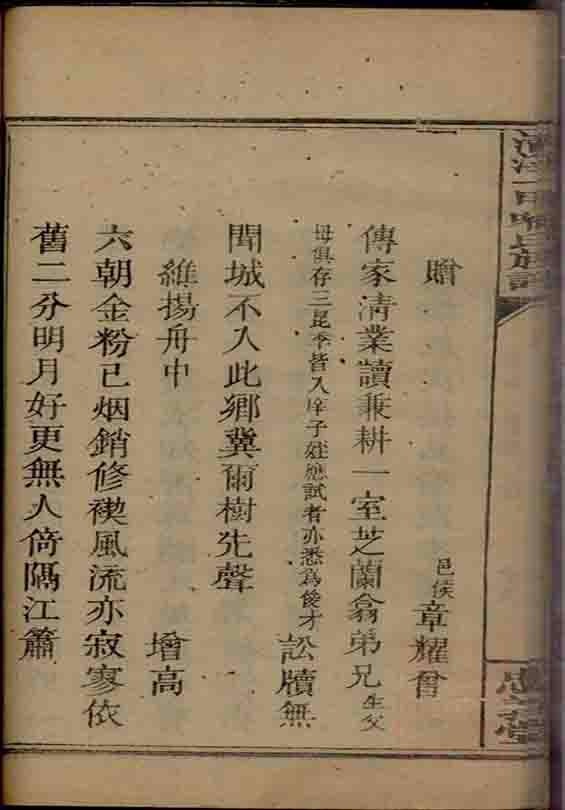 贈 邑侯章耀曾
傳家清業讀兼耕一室芝蘭翕弟兄生父
母俱存三昆季皆入庠子姪應試者亦悉為俊才訟牘無
聞城不入此鄉冀爾樹先聲
維揚舟中 增高
六朝金粉已烟銷修禊風流亦寂寥依
舊二分明月好更無人倚隔江簫